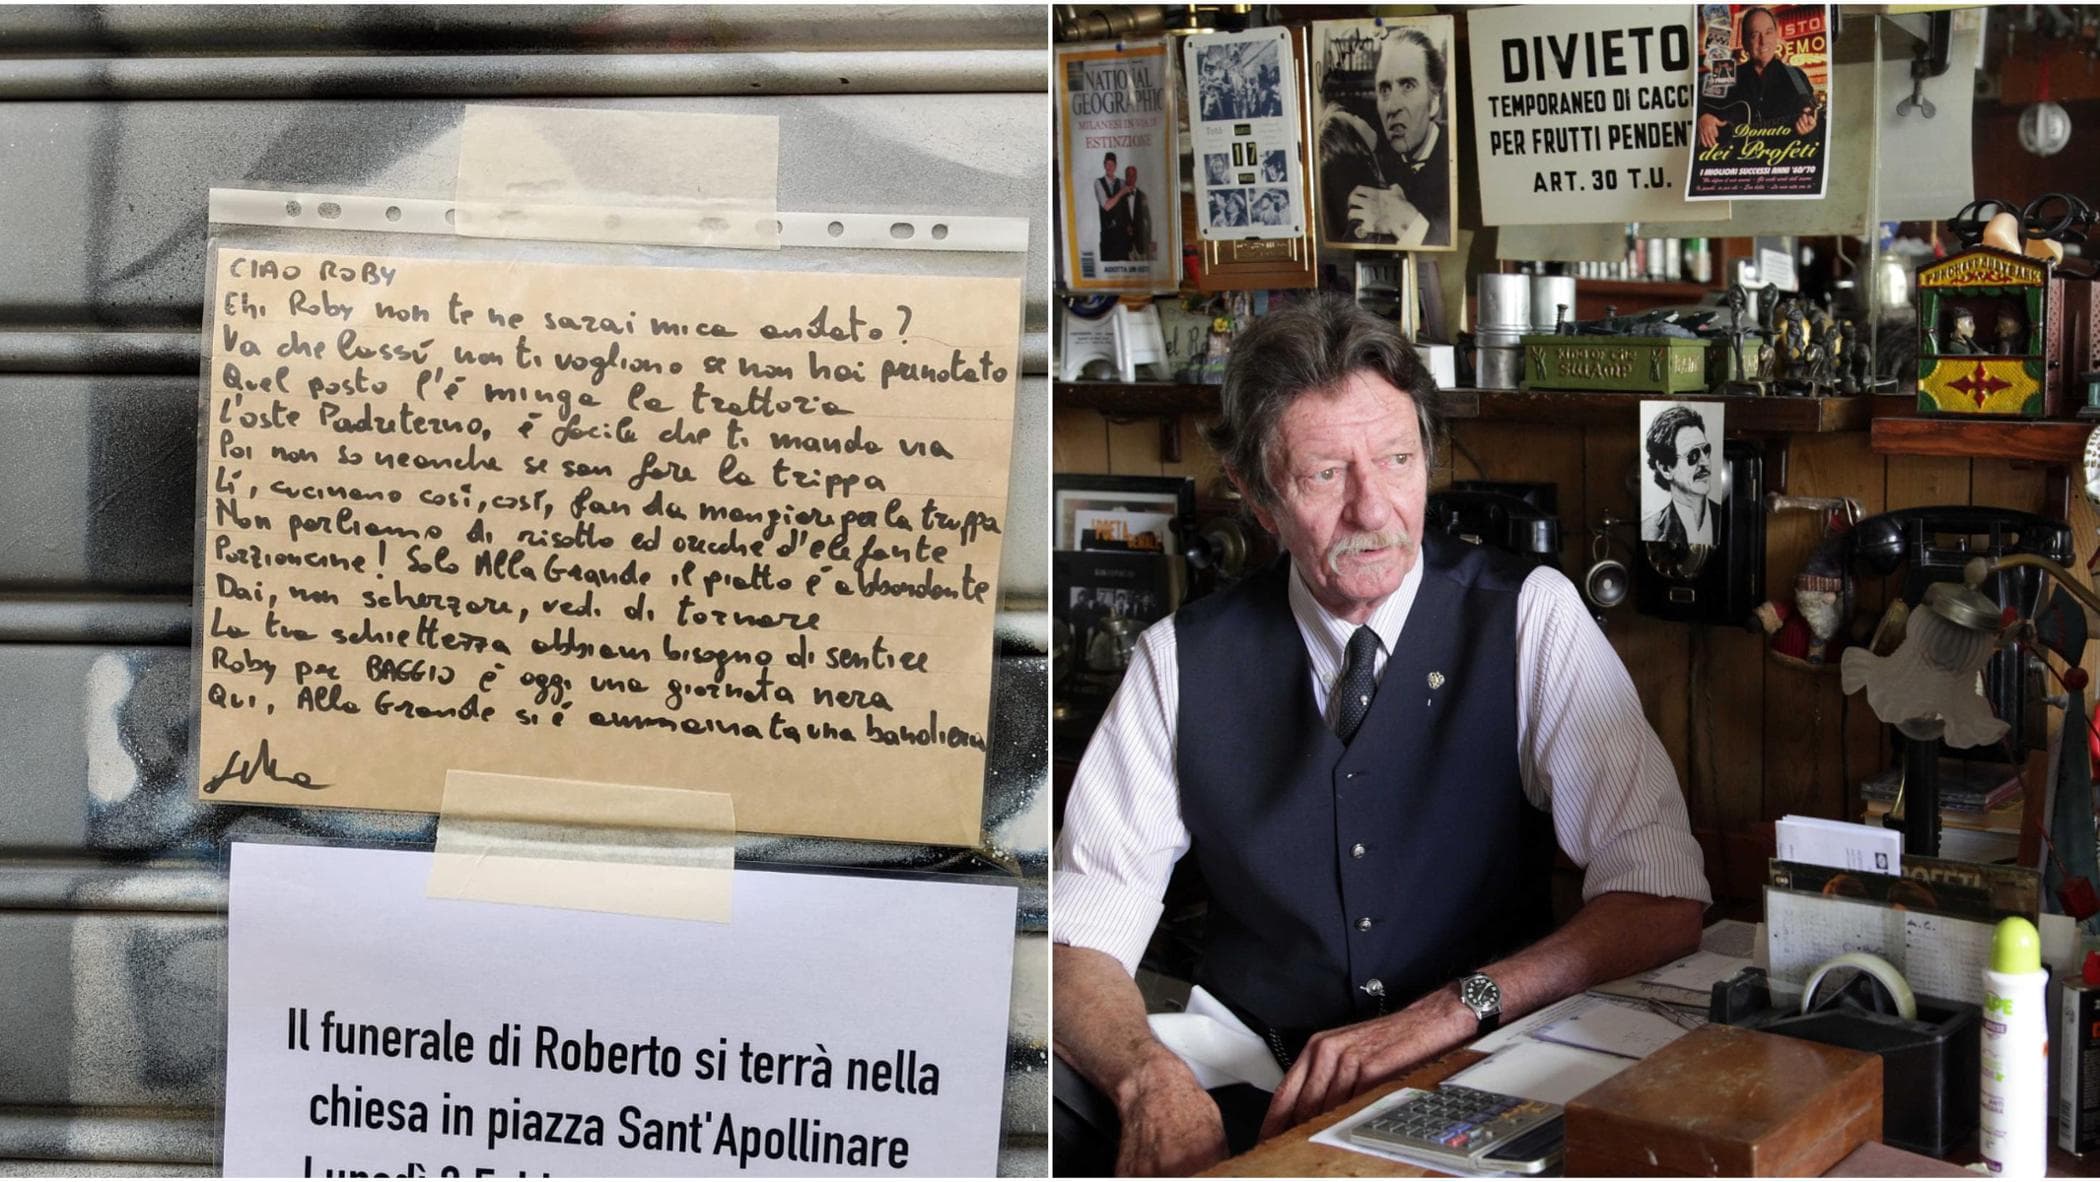 CIAO ROBY
Ehi Roby non te ne sarai mica andato?
Va che lassù non ti vogliono se non hai prenotato
Quel posto l'è minga la trattoria
L'oste Padreterno, è facile che ti manda via
Poi non so neanche se san fare la trippa
Lì, cucinano così, così, fan da mangiare per la truppa
Non parliamo di risotto ed orecchie d'elefante
Porzioncine! Solo Alla Grande il piatto è abbondante
Dai, non scherzare, vedi di tornare
La tua schiettezza abbiam bisogno di sentire
Roby per BAGGIO è oggi una giornata nera
Qui, Alla Grande si è ammainata una bandiera
Il funerale di Roberto si terrà nella
chiesa in piazza Sant'Apollinare
NATIONAL
GEOGRAPHIC
MILANESI IN VIA DI
ESTINZIONE
17
DIVIETO
TEMPORANEO DI CACCI
PER FRUTTI PENDENT
ART. 30 T.U.
Donato
dei Profeti
I MIGLIORI SUCCESSI ANNI '60/'70
PUNCH AND JUDY BANK
KING OF THE
SWAMP